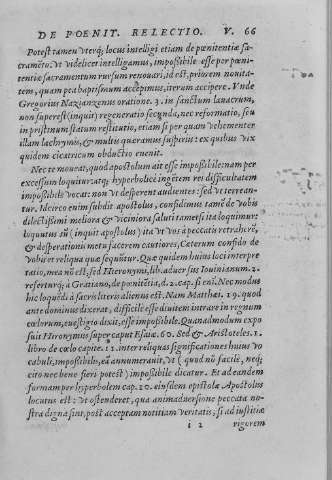 DE POENIT. RELECTIO. V. 66
Potest tamen vterq; locus intelligi etiam de pœnitentiæ sa-
cramēto: vt videlicet intelligamus, impoßibile esse per pœni-
tentiæ sacramentum rursum renouari, id est, priorem nouita-
tem, quam per baptismum accepimus, iterum accipere. Vnde
Gregorius Nazianzenus oratione. 3. in sanctum lauacrum,
non superest (inquit) regeneratio secunda, nec reformatio, seu
in pristinum statum restitutio, etiam si per quam vehementer
illam lachrymis, & multis quæramus suspirijs: ex quibus vix
quidem cicatricum obductio euenit.
Nec te moueat, quod apostolum ait esse impoßibile: nam per
excessum loquitur: atq; hyperbolicè ingētem rei difficultatem
impoßibile vocat: non vt desperent audientes: sed vt terrean-
tur. Idcirco enim subdit apostolus, confidimus tamē de vobis
dilectißimi meliora & viciniora saluti tametsi ita loquimur:
loquutus sū (inquit apostolus) ita vt vos à peccatis retraherē,
& desperationis metu facerem cautiores, Ceterum confido de
vobis et reliqua quæ sequūtur. Quæ quidem huius loci interpre
tatio, mea nō est, sed Hieronymi, lib. aduersus Iouinianum. 2.
referturq; a Gratiano, de pœnitētia. d. 2. cap. si enī. Nec modus
hic loquēdi à sacris literis alienus est. Nam Matthæi. 19. quod
ante dominus dixerat, difficile esse diuitem intrare in regnum
cœlorum, è vestigio dixit, esse impoßibile. Quem admodum expo
suit Hieronymus super caput Esaiæ. 60. Sed & Aristoteles. 1.
libro de cœlo capite. 12. inter reliquas significationes huius vo
cabuli, impoßibile, eā annumerauit, vt (quod nō facilè, neq;
cito nec bene fieri potest) impoßibile dicatur. Et ad eandem
formam per hyperbolem cap. 10. eiusdem epistolæ Apostolus
locutus est: vt ostenderet, qua animaduersione peccata no-
stra digna sint, post acceptam notitiam veritatis, si ad iustitiæ
i 2 rigorem